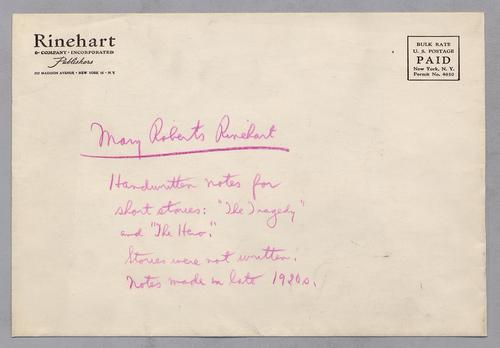 Rinehart
& COMPANY · INCORPORATED
Publishers
232 MADISON AVENUE · NEW YORK 16 · N.Y.
BULK RATE
U. S. POSTAGE
PAID
New York, N. Y.
Permit No. 4050
Mary Roberts Rinehart
Handwritten notes for
short stories: "The Tragedy"
and "The Hero."
Stories were not written.
Notes made in late 1920s.